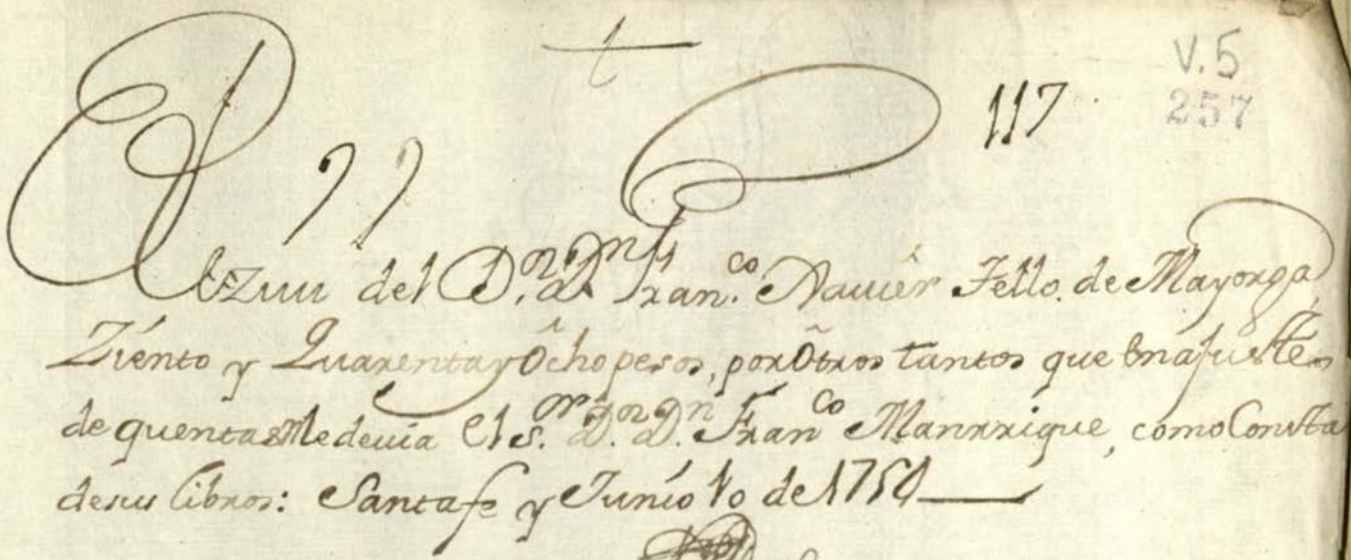 †
V.5
117
257
Rezuí del D.ʳ D.ⁿ Fran.ᶜᵒ Xauiêr Tello de Mayorga
Ziento y Quarenta y Ôcho pesos, por Õtros tantos que en ajustes
de quentas Me deuia el S.ᵒʳ D.ʳ D.ⁿ Franᶜᵒ Manrrique, como Consta
de sus libros: Santafe y Junio 10 de 1754